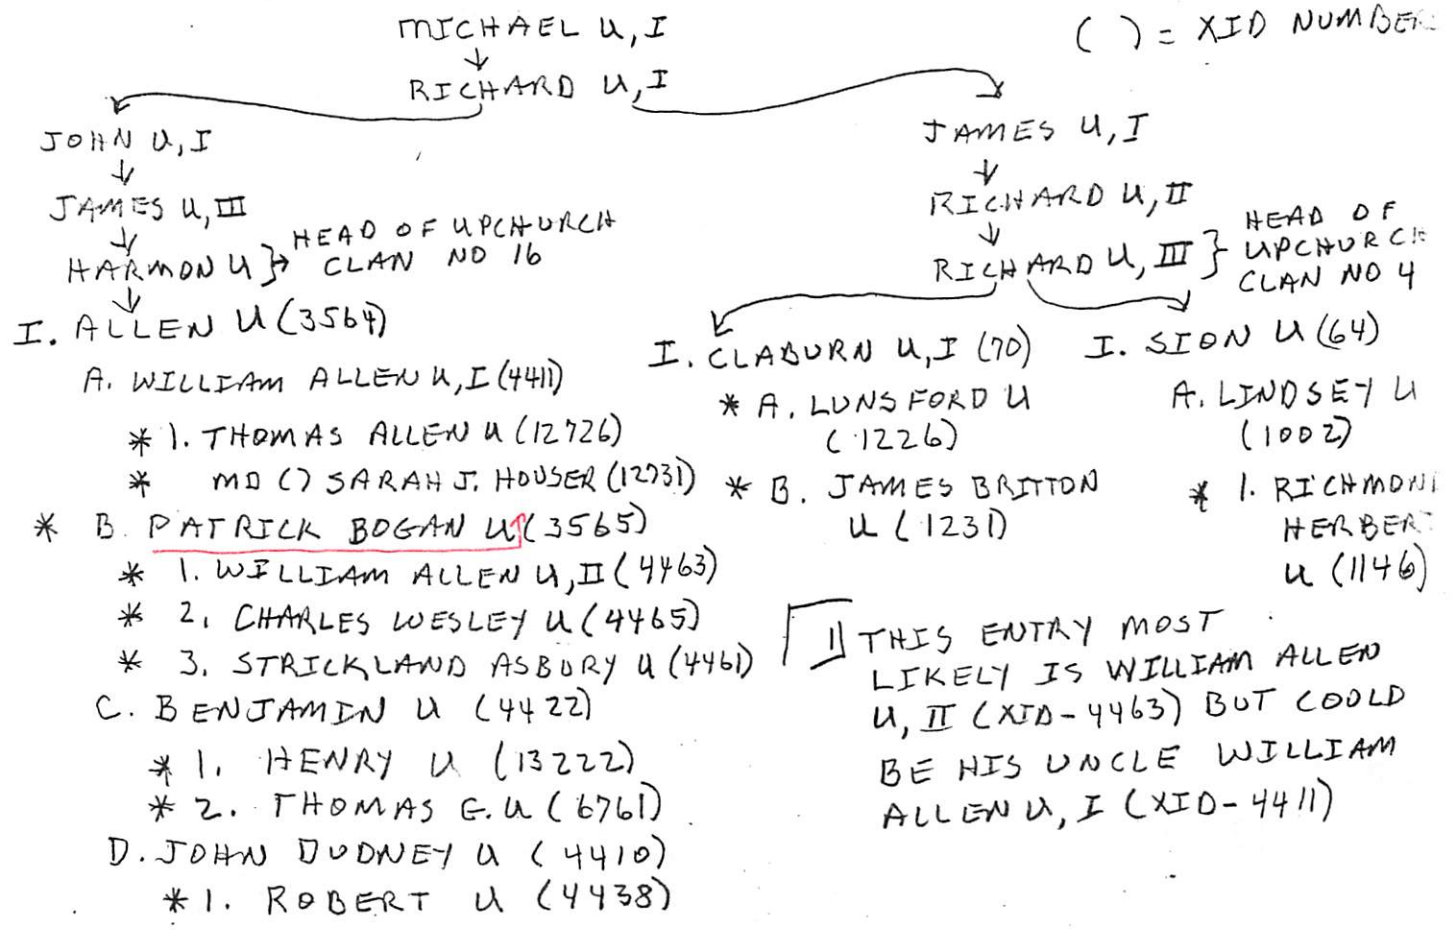 MICHAEL U, I
( ) = XID NUMBER
RICHARD U, I
JOHN U, I
JAMES U, III
HARMON U } HEAD OF UPCHURCH
CLAN NO 16
I. ALLEN U (3564)
A. WILLIAM ALLEN U, I (4411)
* 1. THOMAS ALLEN U (12726)
* MD () SARAH J. HOUSER (12731)
* B. PATRICK BOGAN U (3565)
* 1. WILLIAM ALLEN U, II (4463)
* 2. CHARLES WESLEY U (4465)
* 3. STRICKLAND ASBURY U (4461)
C. BENJAMIN U (4422)
* 1. HENRY U (13222)
* 2. THOMAS G. U (6761)
D. JOHN DUDNEY U (4410)
* 1. ROBERT U (4438)
JAMES U, I
RICHARD U, II
RICHARD U, III } HEAD OF
UPCHURCH
CLAN NO 4
I. CLABURN U, I (70)
* A. LUNSFORD U
(1226)
* B. JAMES BRITTON
U (1231)
I. SION U (64)
A. LINDSEY U
(1002)
* 1. RICHMOND
HERBER
U (1146)
1) THIS ENTRY MOST
LIKELY IS WILLIAM ALLEN
U, II (XID-4463) BUT COULD
BE HIS UNCLE WILLIAM
ALLEN U, I (XID-4411)